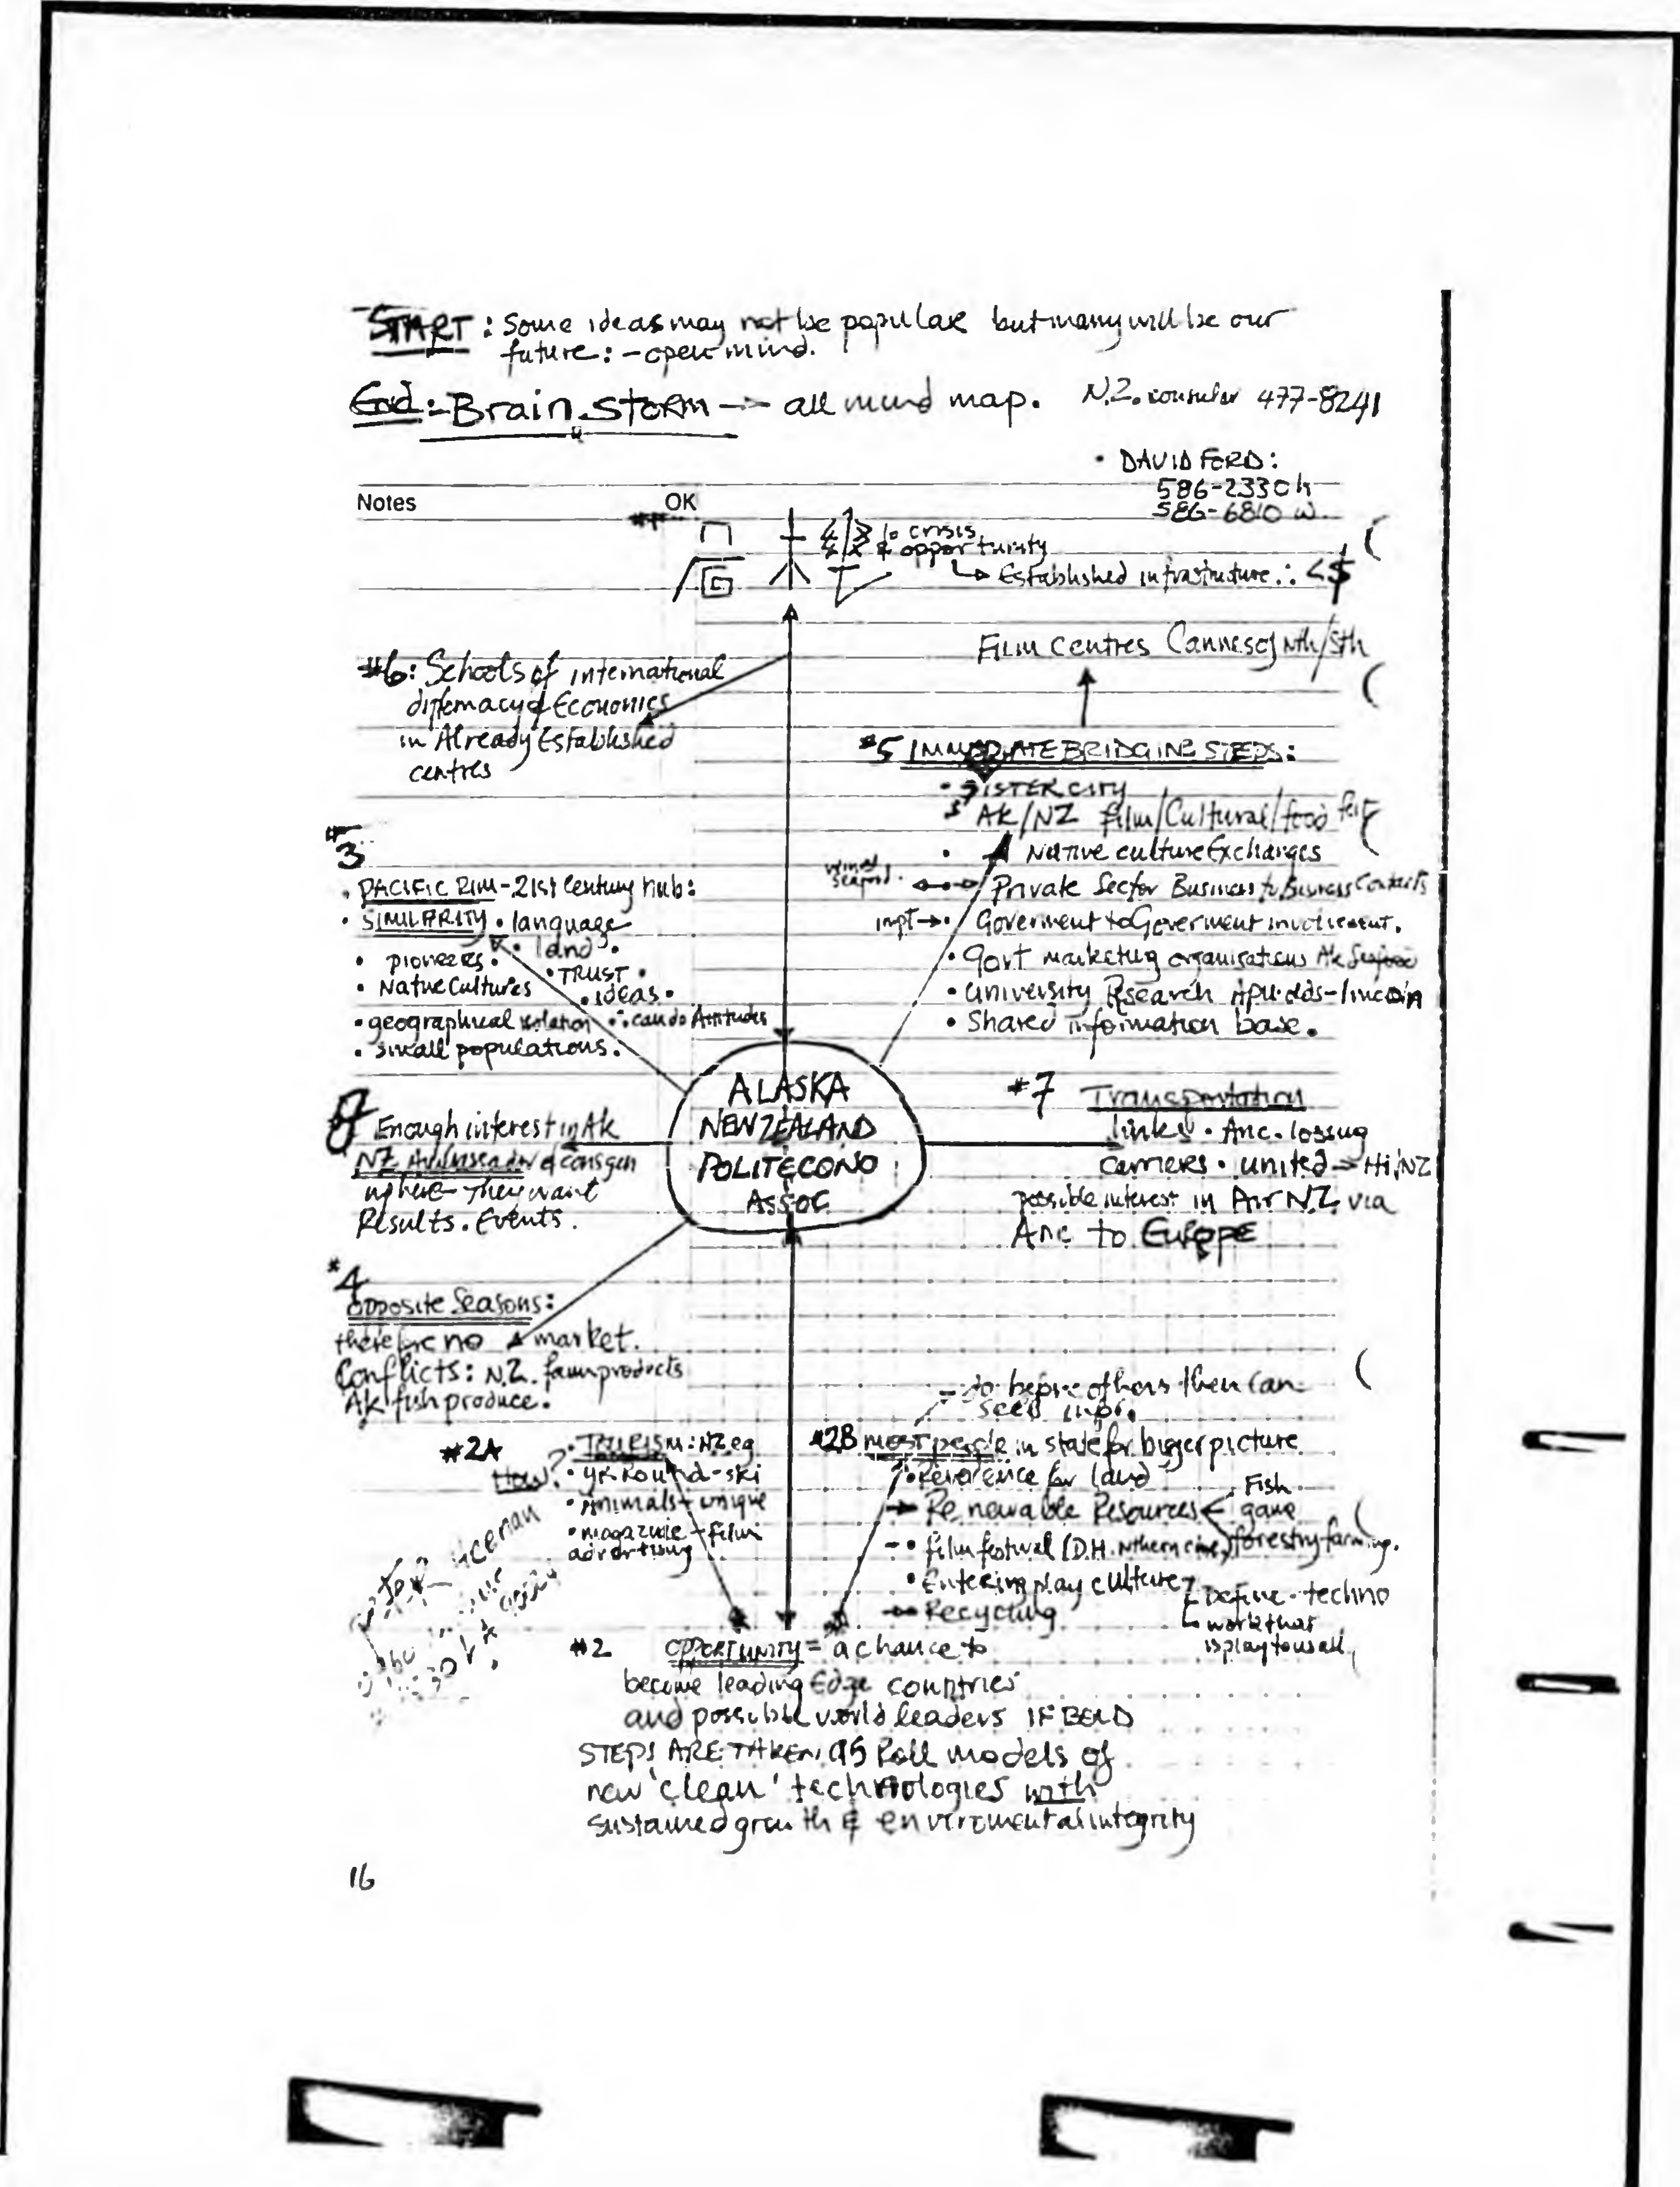 START: Some ideas may not be popular but many will be our
future: - open mind.
End: - Brain storm -> all mind map. N.Z. consular 477-8241
• DAVID FORD:
586-2330 h
586-6810 w
Notes OK
#1
crisis
& opportunity
Established infrastructure ∴ <$
Film Centres Cannes of Nth/Sth
#6: Schools of international
diplomacy & Economics
in Already Established
centres
#5 IMMEDIATE BRIDGING STEPS:
• SISTER CITY
AK/NZ film/Cultural/food fest
• Native culture Exchanges
seafood. Private Sector Business to Business Contacts
impt → • Goverment to Goverment involvement.
• Govt marketing organisations Ak Seafood
• University Research APU
• Shared information base.
#3
• PACIFIC RIM - 21st Century hub:
• SIMILARITY • language
• land •
• pioneers •
• TRUST •
• Native Cultures
• ideas •
• geographical isolation ∴ can do Attitudes
• small populations.
ALASKA
NEW ZEALAND
POLITECONO
ASSOC
#7 Transportation
links • Anc. losing
carriers • united → Hi/NZ
possible interest in Air NZ via
Anc to Europe
8 Enough interest in Ak
NZ & consgen
where they want
Results. Events.
#4
Opposite Seasons:
therefore no market.
Conflicts: N.Z. farm products
Ak fish produce.
- to before others then can
seed
#2A • TOURISM: NZ eg
How? • yr Round - ski
• Animals + unique
• magazine - film
advertising
#2B most people in state for bigger picture
• Reverence for land
→ Renewable Resources < Fish
game
forestry farming.
- • film festival (D.H. Nthern cine)
• Entering play culture
Define - techno
work that
is play to us all
→ Recycling
#2 OPPORTUNITY = a chance to
become leading Edge countries
and possible world leaders IF BOLD
STEPS ARE TAKEN: as Roll models of
new 'clean' technologies with
sustained growth & enviromental integrity
16